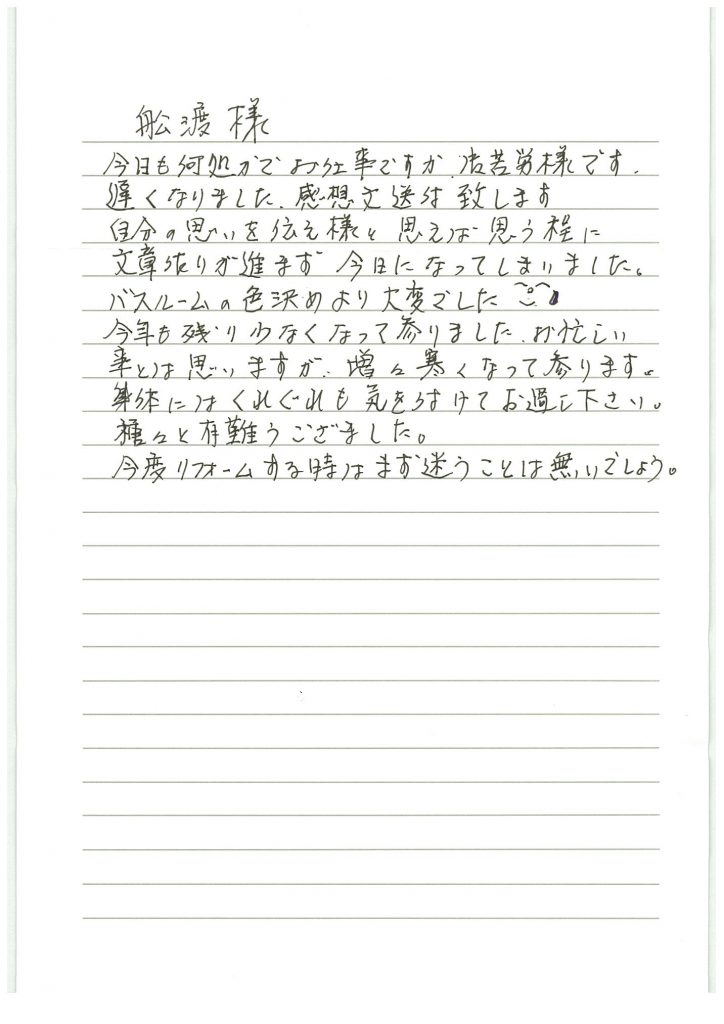 舩渡様
今日も何処かでお仕事ですか、御苦労様です。
遅くなりました、感想文送付致します
自分の思いを伝え様と思えば思う程に
文章作りが進まず 今日になってしまいました。
バスルームの色決めより大変でした
今年も残り少なくなって参りました、お忙しい
事とは思いますが、増々寒くなって参ります。
身体にはくれぐれも気を付けてお過し下さい。
種々と有難うござました。
今度リフォームする時はまず迷うことは無いでしょう。